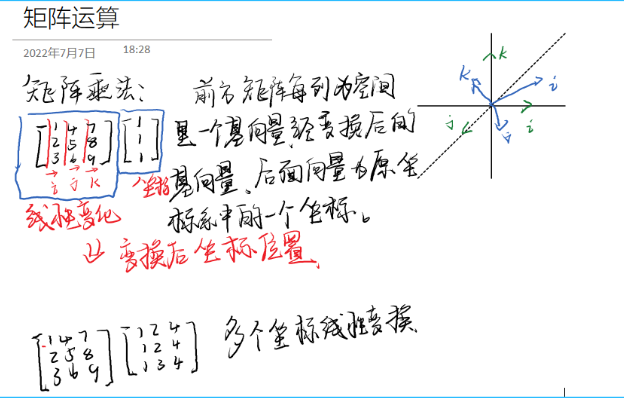 矩阵运算
2022年7月7日 18:28
矩阵乘法: 前方矩阵每列为空间
里一个基向量,经变换后的
基向量、后面向量为原坐
标系中的一个坐标。
1 4 7 1
2 5 8 1
3 6 9 1
i j k 坐标
线性变化
⇓ 变换后坐标位置
k k i
j j i
1 4 7 1 2 4 多个坐标线性变换
2 5 8 1 2 4
3 6 9 1 3 4